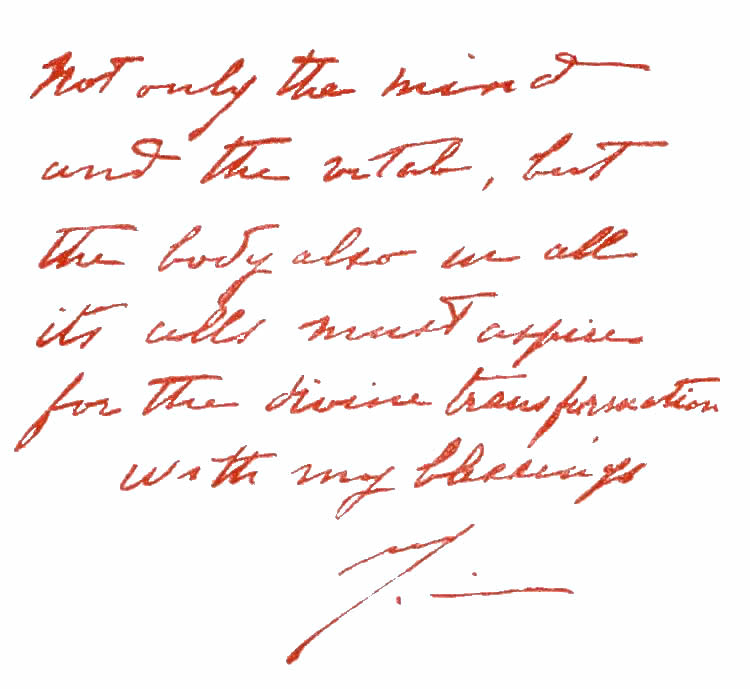 Not only the mind
and the vital, but
the body also in all
its cells must aspire
for the divine transformation
with my blessings